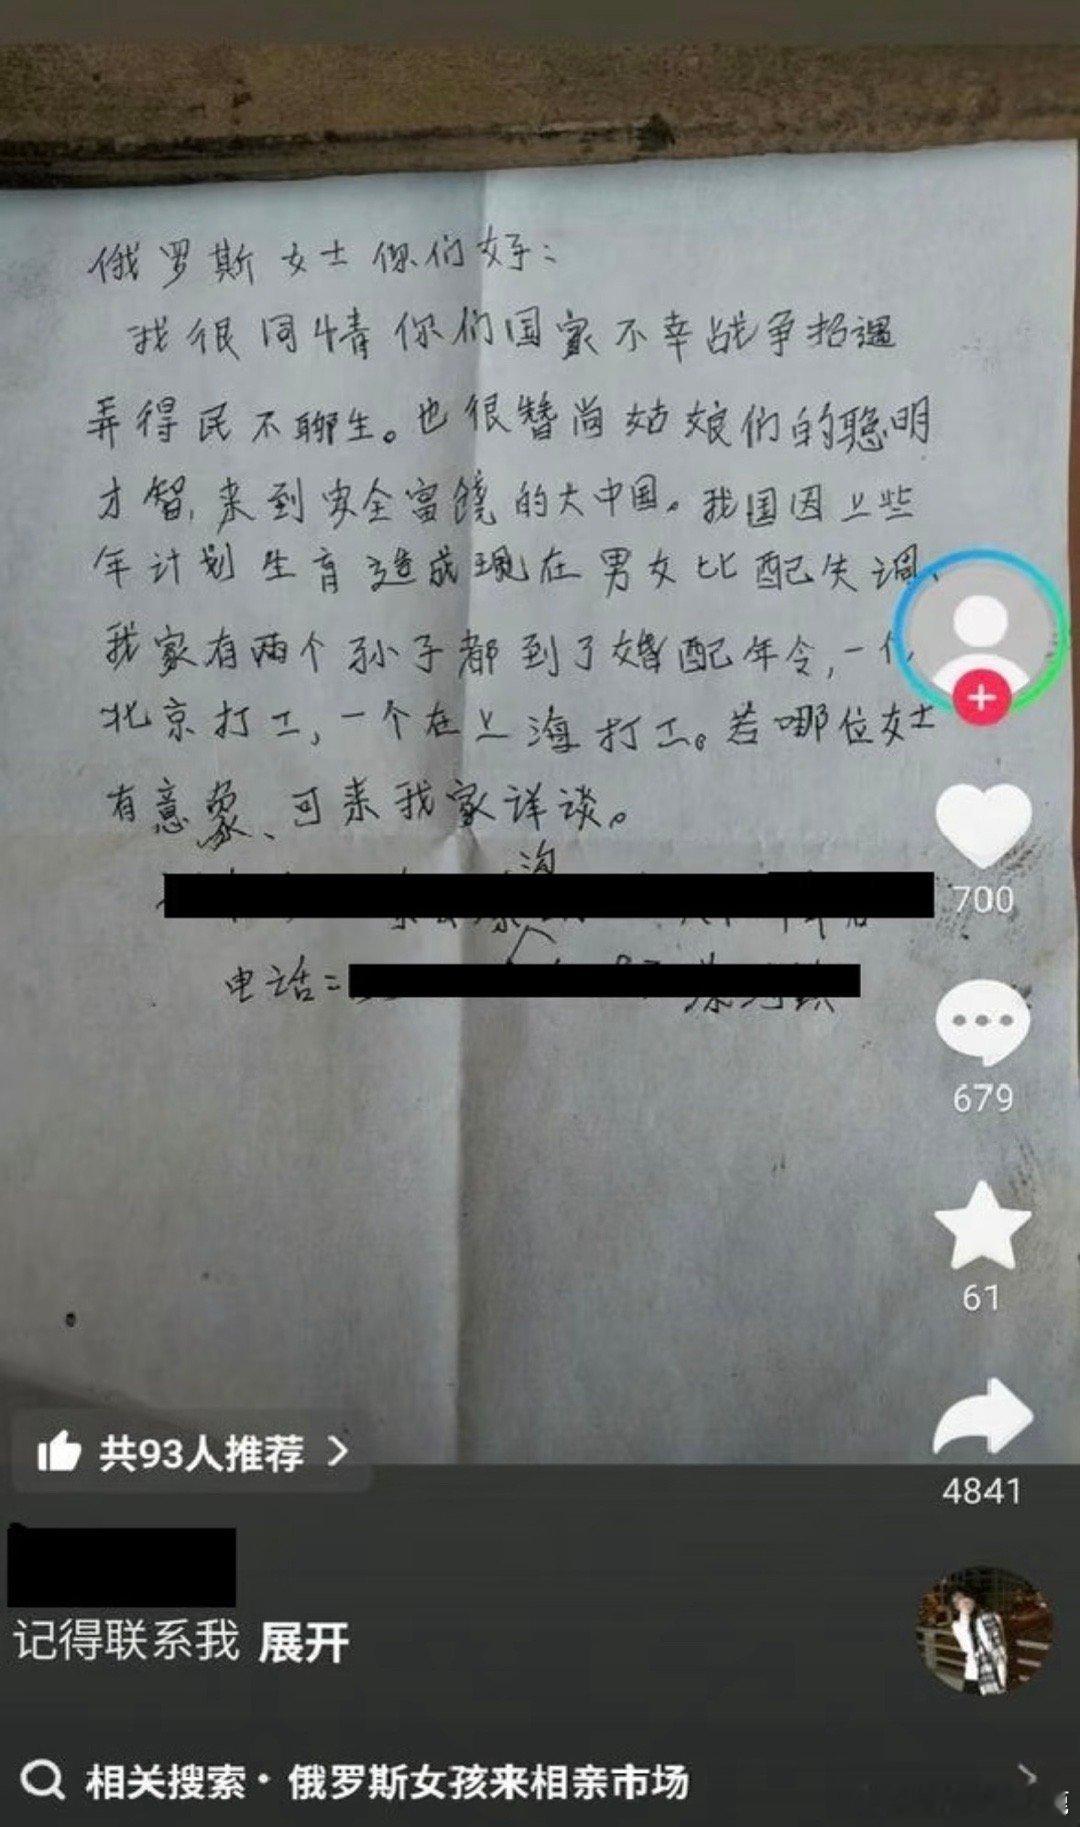 俄罗斯女士你们好：
我很同情你们国家不幸战争招遇
弄得民不聊生。也很赞尚姑娘们的聪明
才智,来到安全富饶的大中国。我国因上些
年计划生育造成现在男女比配失调、
我家有两个孙子都到了婚配年令,一个
北京打工,一个在上海打工。若哪位女士
有意象、可来我家详谈。
沟
电话：
700
679
61
4841
共93人推荐 >
记得联系我 展开
相关搜索·俄罗斯女孩来相亲市场